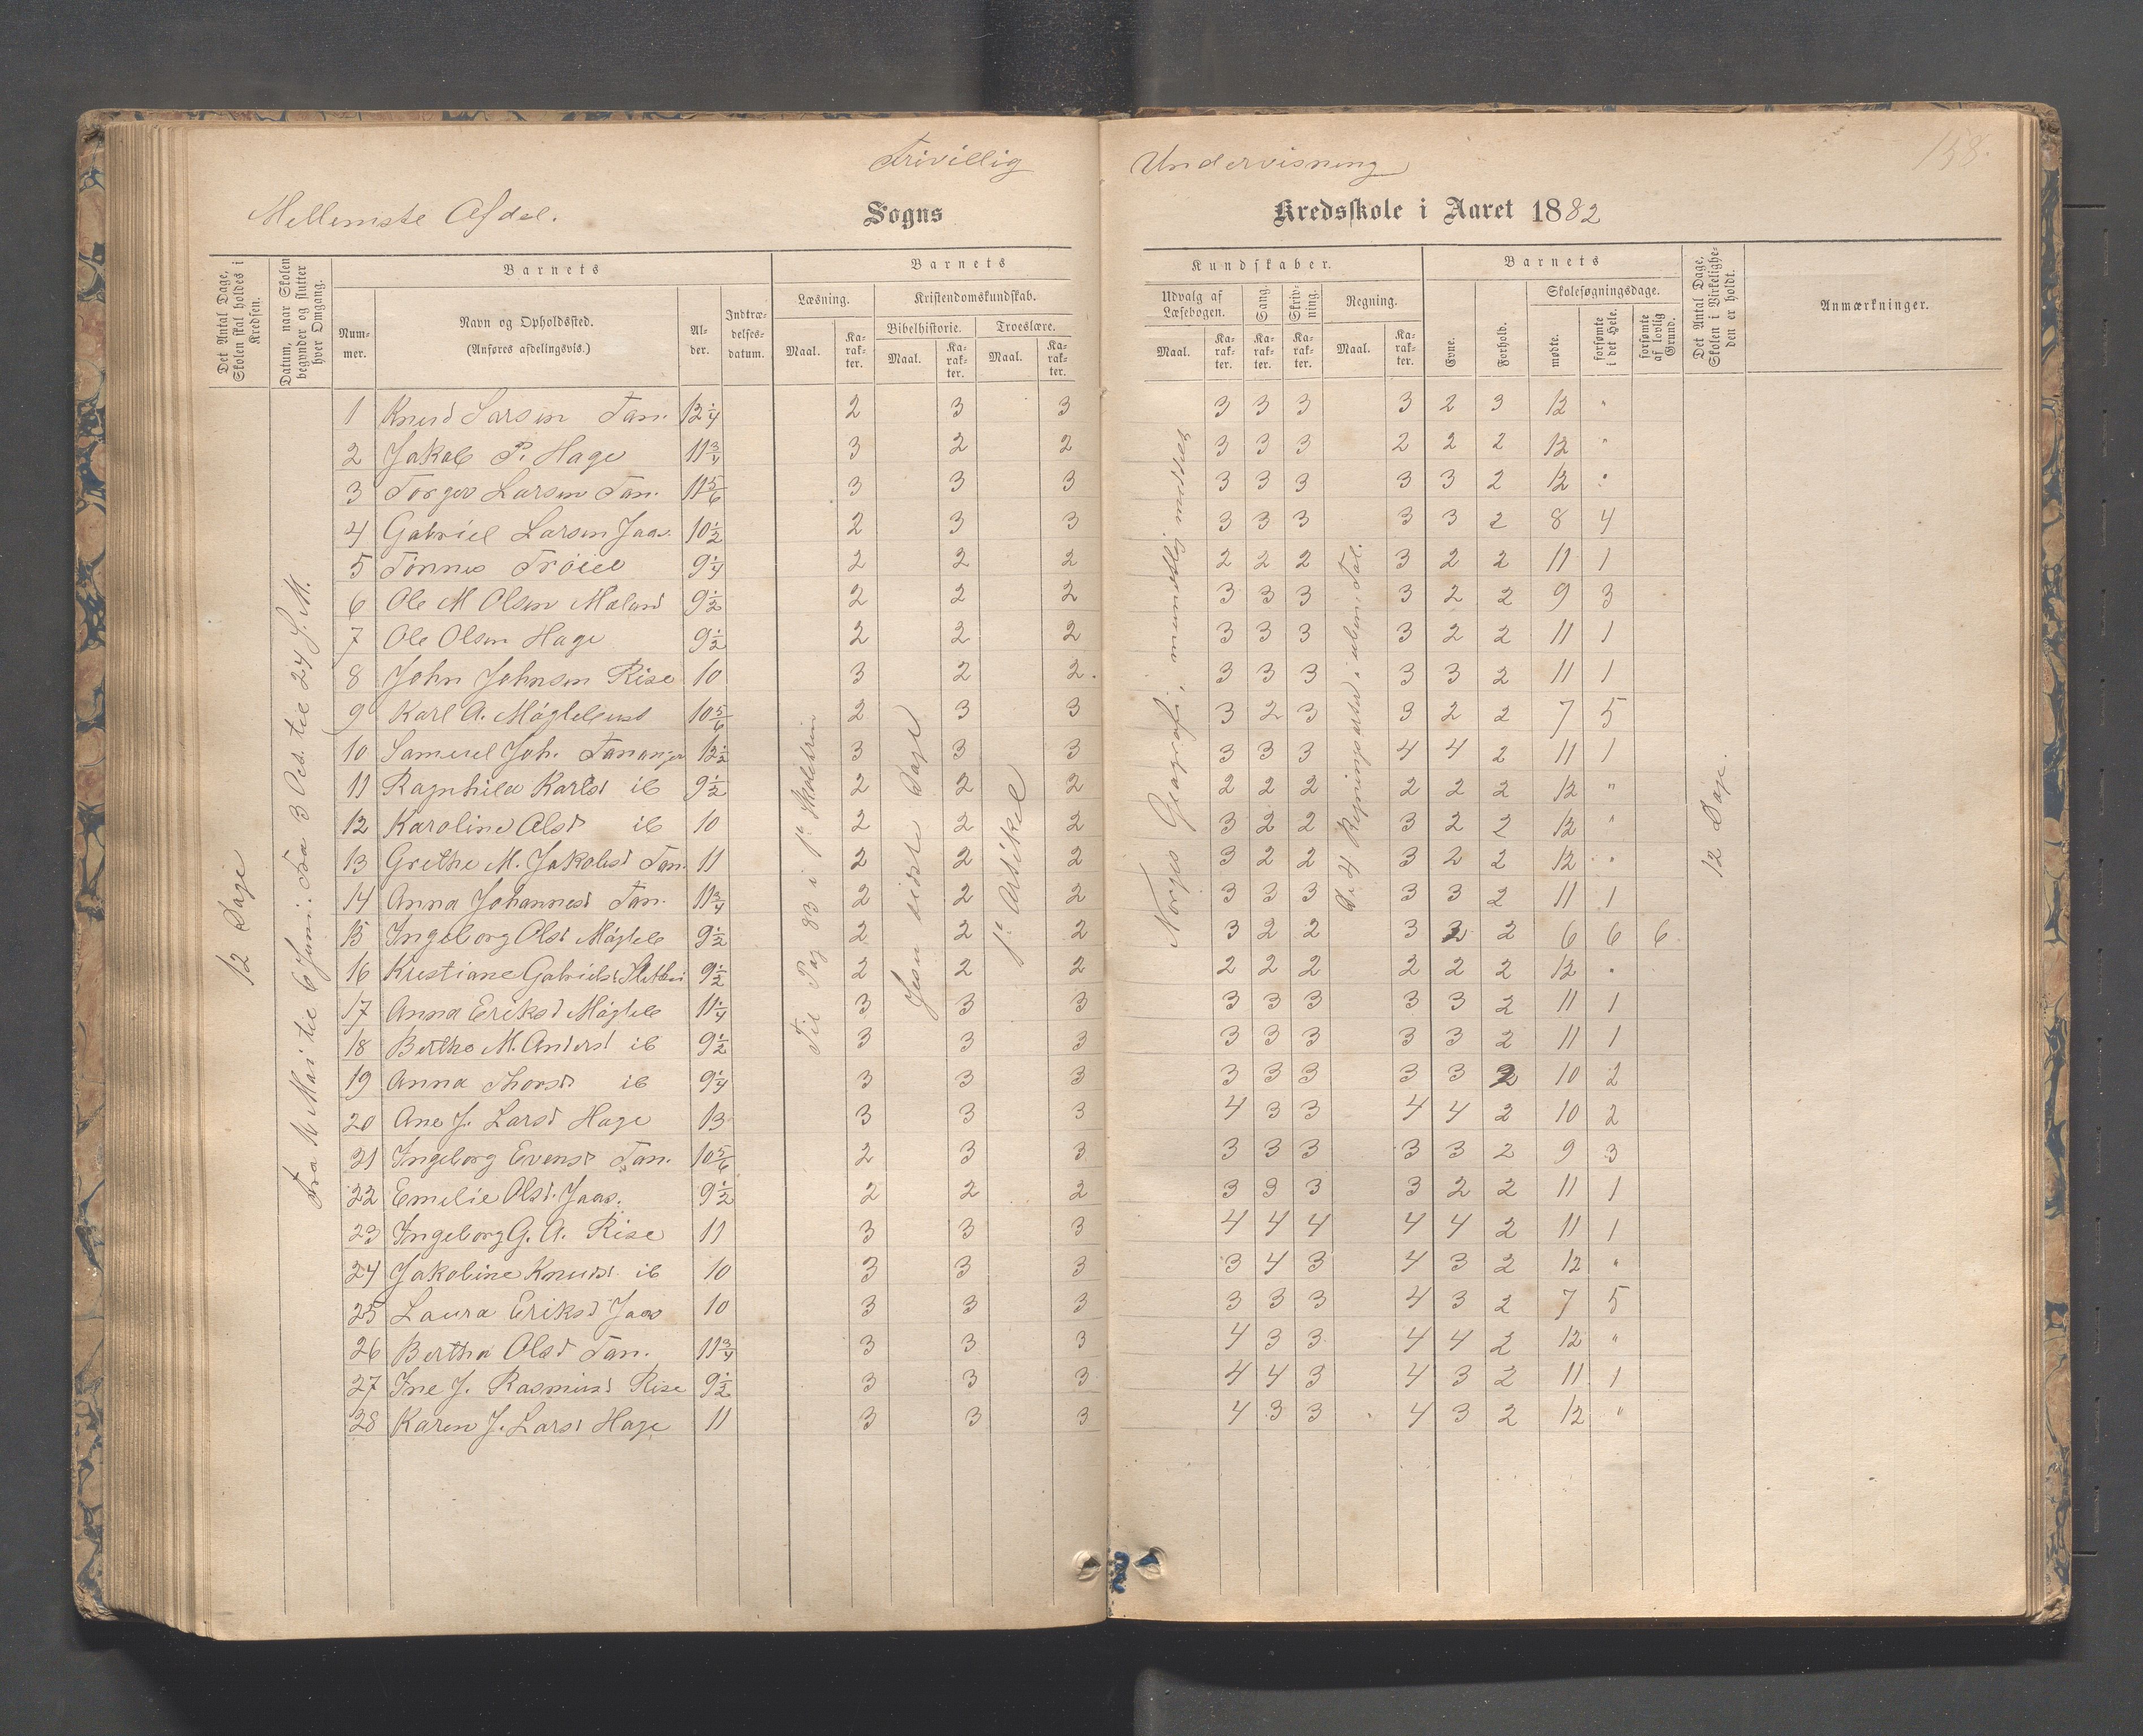 Frivillig Undervisning
158.
Mellemste Afdel. Sogns Kredsskole i Aaret 1882
Det Antal Dage, Skolen skal holdes i Kredsen.
Datum, naar Skolen begynder og slutter hver Omgang.
Barnets
Nummer.
Navn og Opholdssted. (Anføres afdelingsvis.)
Alder.
Indtrædelsesdatum.
Barnets Kundskaber.
Læsning. Maal. Karakter.
Kristendomskundskab.
Bibelhistorie. Maal. Karakter.
Troeslære. Maal. Karakter.
Udvalg af Læsebogen. Maal. Karakter.
Sang. Karakter.
Skrivning. Karakter.
Regning. Maal. Karakter.
Barnets
Evne.
Forhold.
Skolesøgningsdage.
mødte.
forsømte i det Hele.
forsømte af lovlig Grund.
Det Antal Dage, Skolen i Virkeligheden er holdt.
Anmærkninger.
12 Dage
Til Pag 83 i
Jesu sidste Dage
1ste Artikel
Norges Geografi,
De 4 Regningsarter i
12 Dage.
1 Knud Larsen Tan. 12 1/4 2 3 3 3 3 3 3 2 3 12 "
2 Jakob P. Hage 11 3/4 3 2 2 3 3 3 2 2 2 12 "
3 Torger Larsen Tan. 11 5/6 3 3 3 3 3 3 3 3 2 12 "
4 Gabriel Larsen Jaas. 10 1/2 2 3 3 3 3 3 3 3 2 8 4
5 Tönnes 9 1/4 2 2 2 2 2 2 3 2 2 11 1
6 Ole M Olsen Meland 9 1/2 2 2 2 3 3 3 3 2 2 9 3
7 Ole Olsen Hage 9 1/2 2 2 2 3 3 3 3 2 2 11 1
8 John Johnsen Rise 10 3 2 2. 3 3 3 3 3 2 11 1
9 Karl A. 10 5/6 2 3 3 3 2 3 3 2 2 7 5
10 Samuel Joh. Tananger 12 1/2 3 3 3 3 3 3 4 4 2 11 1
11 Ragnhild Karlsd ib 9 1/2 2 2 2 2 2 2 2 2 2 12 "
12 Karoline Olsd ib 10 2 2 2 3 2 2 3 2 2 12 "
13 Grethe M. Jakobsd Tan. 11 2 2 2 3 2 2 3 2 2 12 "
14 Anna Johannesd Tan. 11 3/4 2 2 2 3 3 3 3 3 2 11 1
15 Ingeborg Olsd Mögleb 9 1/2 2 2 2 3 2 2 3 2 2 6 6 6
16 Kristiane Gabrielsd 9 1/2 2 2 2 2 2 2 2 2 2 12 "
17 Anna Eriksd Mögleb 11 1/4 3 3 3 3 3 3 3 3 2 11 1
18 Bertha M. Andersd ib 9 1/2 3 3 3 3 3 3 3 3 2 11 1
19 Anna Thorsd ib 9 1/4 3 3 3 3 3 3 3 3 2 10 2
20 Ane J. Larsd Hage 13 3 3 3 4 3 3 4 4 2 10 2
21 Ingeborg Evensd Tan. 10 5/6 2 3 3 3 3 3 3 3 2 9 3
22 Emelie Olsd. Jaas. 9 1/2 2 2 2 3 3 3 3 2 2 11 1
23 Ingeborg G. A. Rise 11 3 3 3 4 4 4 4 4 2 11 1
24 Jakobine Knudsd ib 10 3 3 3 3 4 3 4 3 2 12 "
25 Laura Eriksd Jaas 10 3 3 3 3 3 3 4 3 2 7 5
26 Bertha Olsd Tan. 11 3/4 3 3 3 4 3 3 4 4 2 12 "
27 Ine J. Rasmusd Rise 9 1/2 3 3 3 4 4 3 4 3 2 11 1
28 Karen J. Larsd Hage 11 3 3 3 4 3 3 4 3 2 12 "